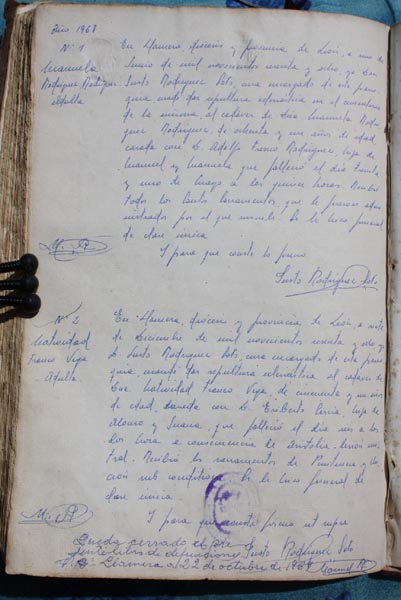 Año 1968
Nº 1
Manuela
Rodríguez Rodríguez
Adulta
En Llamera, diócesis y provincia de León, a uno de
Junio de mil novecientos sesenta y ocho, yo Don
Justo Rodríguez Soto, cura encargado de esta parro
quia, mandé dar sepultura eclesiástica en el cementerio
de la misma, al cadáver de Dña Manuela Rodrí
guez Rodríguez, de ochenta y un años de edad,
casada con D. Adolfo Rodríguez, hija de
Manuel y Manuela que falleció el día treinta
y uno de Mayo a las quince horas. Recibió
todos los Santos Sacramentos, que le fueron admi
nistrados por el que suscribe. Se le hizo funeral
de clase única.
Y para que conste lo firmo
Justo Rodríguez Soto
Nº 2
Natividad
Franco Vega
Adulta
En Llamera, diócesis y provincia de León, a siete
de Diciembre de mil novecientos sesenta y ocho, yo
D. Justo Rodríguez Soto, cura encargado de esta parro
quia, mandé dar sepultura eclesiástica al cadáver de
Dña. Natividad Franco Vega, de cincuenta y un años
de edad, casada con D. Eriberto, hija de
Alonso y Juana, que falleció el día seis a las
dos hora a consecuencia de
Recibió los sacramentos de Penitencia y Un
ción sub conditione. Se le hizo funeral de
clase única.
Y para que conste firmo ut supra
Justo Rodríguez Soto
Queda cerrado el pre
sente libro de defunciones
Llamera a 22 de octubre de